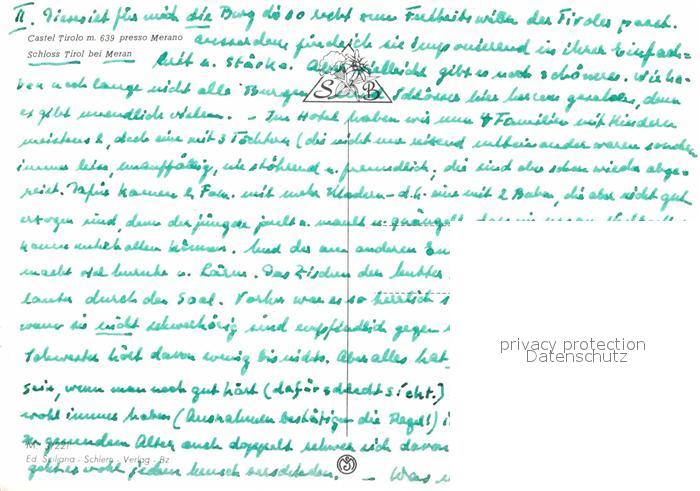 II. Diese ist für mich die Burg die so recht zum Freiheitswillen der Tiroler passt.
Castel Tirolo m. 639 presso Merano
Schloss Tirol bei Meran
ausserdem finde ich sie imponierend in ihrer Einfach=
heit u. Stärke. Aber vielleicht gibt es noch schöneres. Wir ha-
S B
ben noch lange nicht alle Burgen Schlösser hier herum gesehen, denn
es gibt unendlich vielen. - Im Hotel haben wir nun 4 Familien mit Kindern
meistens 2, doch eine mit 3 Töchtern (die nicht nur reizend untereinander waren sondern
immer leise, unauffällig, nie störend u. freundlich, die sind aber schon wieder abge-
reist. Dafür kamen 2 Fam. mit mehr Kindern - d.h. eine mit 2 Buben, die aber nicht gut
erzogen sind, denn der jüngere
kann unterhalten können. Und der am anderen
macht viel Unruhe u. Lärm. Das Zischen der Mutter
lauter durch den Saal. Vorher war es so herrlich
wenn sie nicht schwerhörig sind und empfindlich gegen
Schwester hört davon wenig bis nichts. Aber alles hat
sein, wenn man noch gut hört (dafür schlecht sieht.)
wohl immer haben (Ausnahmen bestätigen die Regel!)
Nr. 3/221
gesundem Alter auch doppelt schwer sich davon
Ed. Suljana - Schlern - Verlag - Bz
geht es wohl jedem Mensch verschieden. - Was
privacy protection
Datenschutz